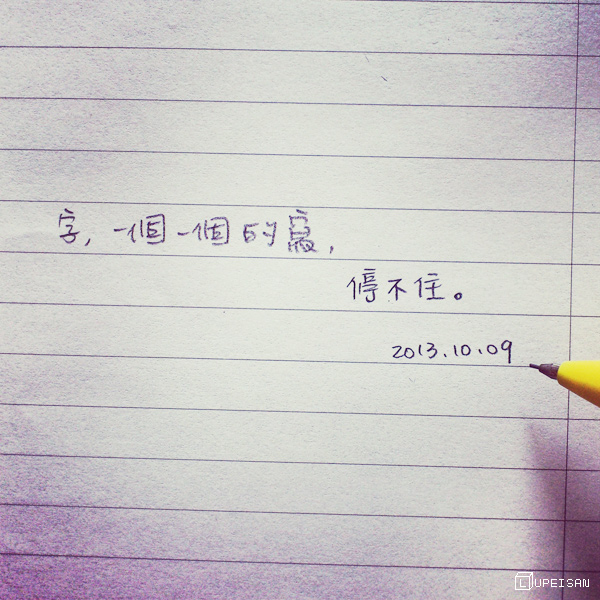 字，一個一個的寫，
停不住。
2013.10.09
LUPEISAN